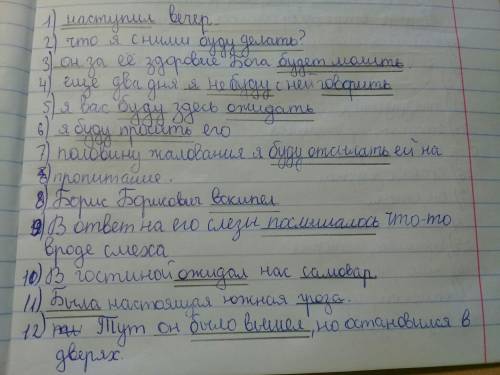 1) наступил вечер.
2) что я с ними буду делать?
3) он за её здоровье Бога будет молить.
4) ещё два дня я не буду с ней говорить
5) я вас буду здесь ожидать
6) я буду просить его
7) половину жалования я буду отсылать ей на
пропитание.
8) Борис Борикович вскипел
9) В ответ на его слезы послышалось что-то
вроде смеха
10) В гостиной ожидал нас самовар
11) Была настоящая южная гроза.
12) Тут он было вышел, но остановился в
дверях.